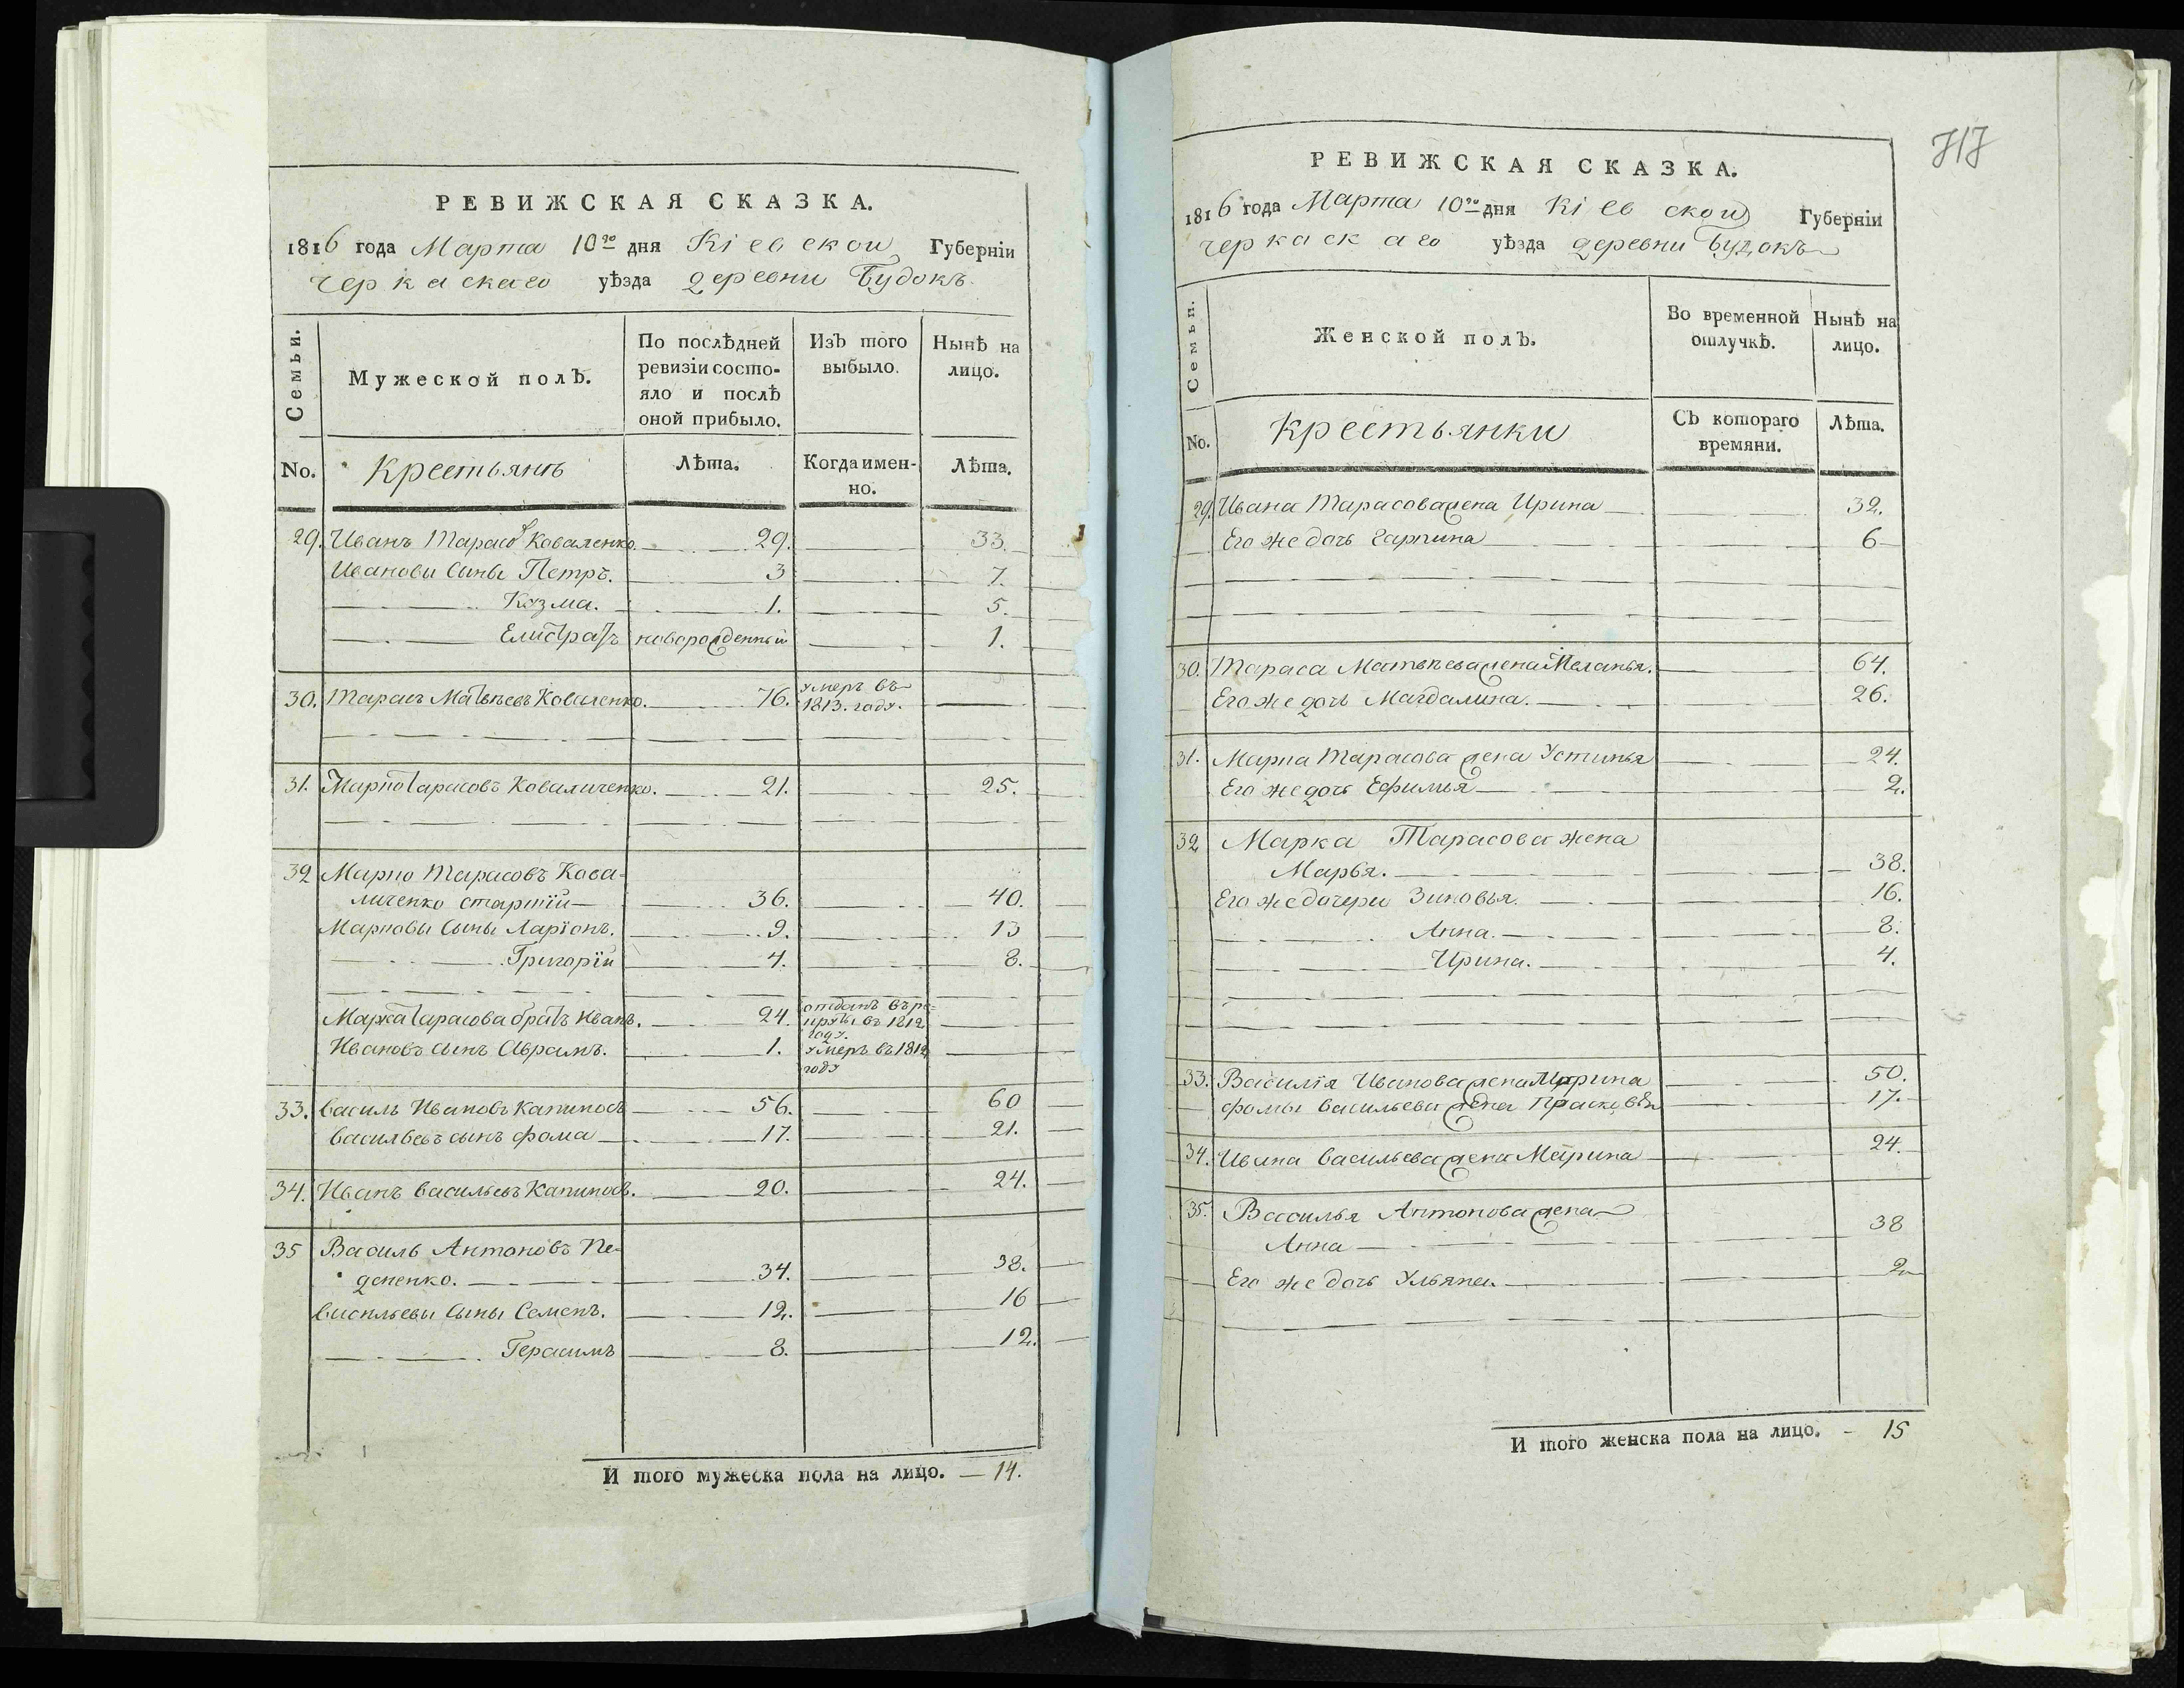 РЕВИЖСКАЯ СКАЗКА.
1816 года Марта 10го дня Кіевской Губерніи
Черкаскаго уѣзда деревни Будокъ
Семьи.
Мужеской полЪ.
По послѣдней ревизіи состо-
яло и послѣ
оной прибыло.
ИзЪ того
выбыло.
Нынѣ на
лицо.
No.
Крестьянъ
Лѣта.
Когда имен-
но.
Лѣта.
29. Иванъ Тарасовъ Коваленко 29. 33.
Ивановы сыны Петръ. 3 7.
Козма. 1. 5.
Елистратъ новорожденный 1.
30. Тарасъ Матвѣевъ Коваленко. 76. умеръ въ
1813. году.
31. Марко Тарасовъ Коваличенко. 21. 25.
32 Марко Тарасовъ Кова-
личенко старшій 36. 40.
Марковы сыны Ларіонъ. 9. 13
Григорій 4. 8.
Марка Тарасова братъ Иванъ. 24. отданъ въ ре-
круты въ 1812
году.
Ивановъ сынъ Аврамъ. 1. умеръ въ 1812
году
33. Василь Ивановъ Капиносъ 56. 60
Васильевъ сынъ Фома 17. 21.
34. Иванъ Васильевъ Капиносъ. 20. 24.
35 Василь Антоновъ
34. 38.
Васильевы сыны Семенъ. 12. 16
Герасимъ 8. 12.
И того мужеска пола на лицо. 14.
717
РЕВИЖСКАЯ СКАЗКА.
1816 года Марта 10го дня Кіевской Губерніи
Черкаскаго уѣзда деревни Будокъ
Семьи.
Женской полЪ.
Во временной
отлучкѣ.
Нынѣ на
лицо.
No.
Крестьянки
СЪ котораго
времяни.
Лѣта.
29. Ивана Тарасова жена Ирина 32.
Его же дочь Гарпина 6
30. Тараса Матвѣева жена Меланья. 64.
Его же дочь Магдалина. 26.
31. Марка Тарасова жена Устинья 24.
Его же дочь Ефимья 2.
32 Марка Тарасова жена
Марья. 38.
Его же дочери Зиновья. 16.
Анна. 8.
Ирина. 4.
33. Василія Иванова жена Марина 50.
Фомы Васильева жена Прасковья 17.
34. Ивана Васильева жена Марина 24.
35. Василья Антонова жена
Анна 38
Его же дочь Ульяна 2
И того женска пола на лицо. 15